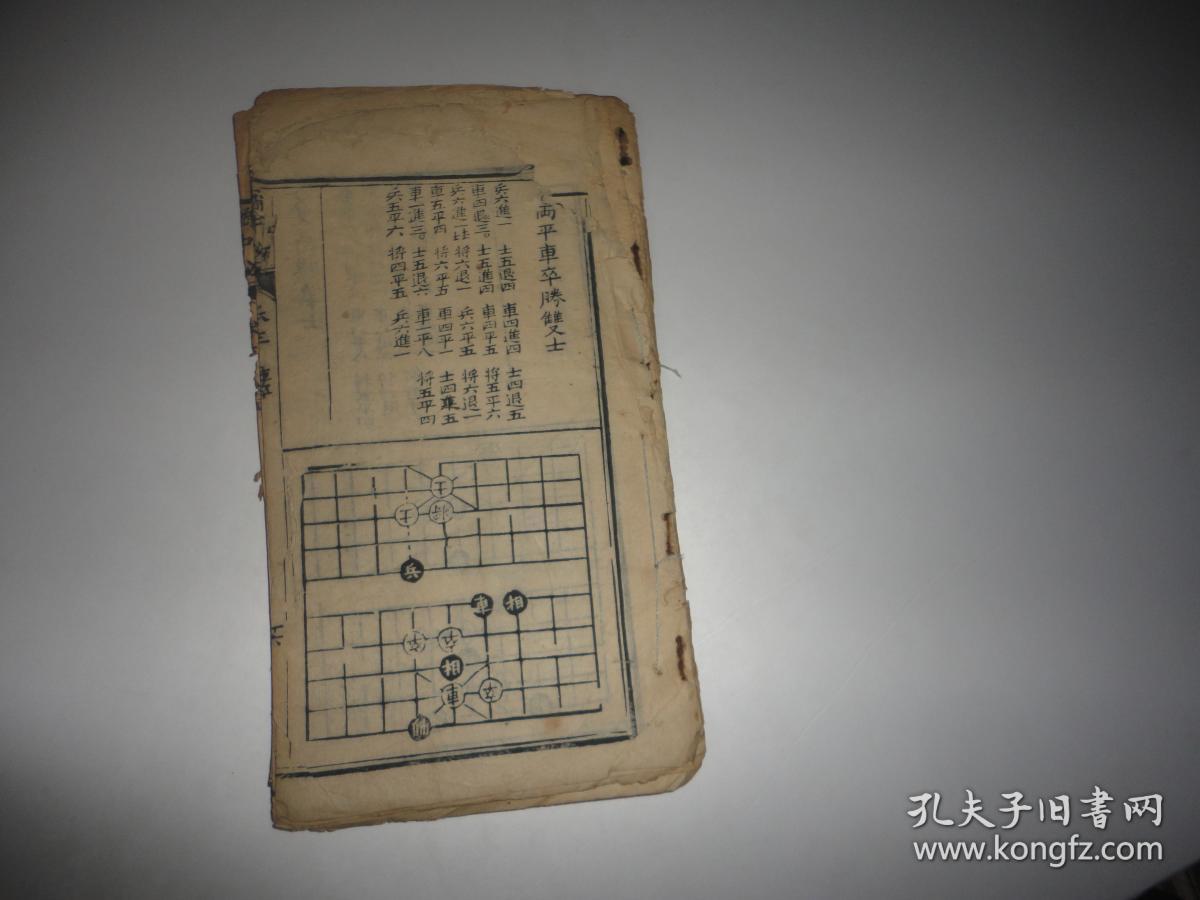 両平車卒勝雙士
兵六進一 士五退四 車四進四 士四退五
車四退三 士五進四 車四平五 将五平六
兵六進一 将六退一 兵六平五 将六退一
車五平四 将六平五 車四平一 士四 五
車一進三 士五退六 車一平八 将五平四
兵五平六 将四平五 兵六進一
士
士 将
兵
車 相
卒 卒
相
車 卒
帥
孔夫子旧书网
www.kongfz.com